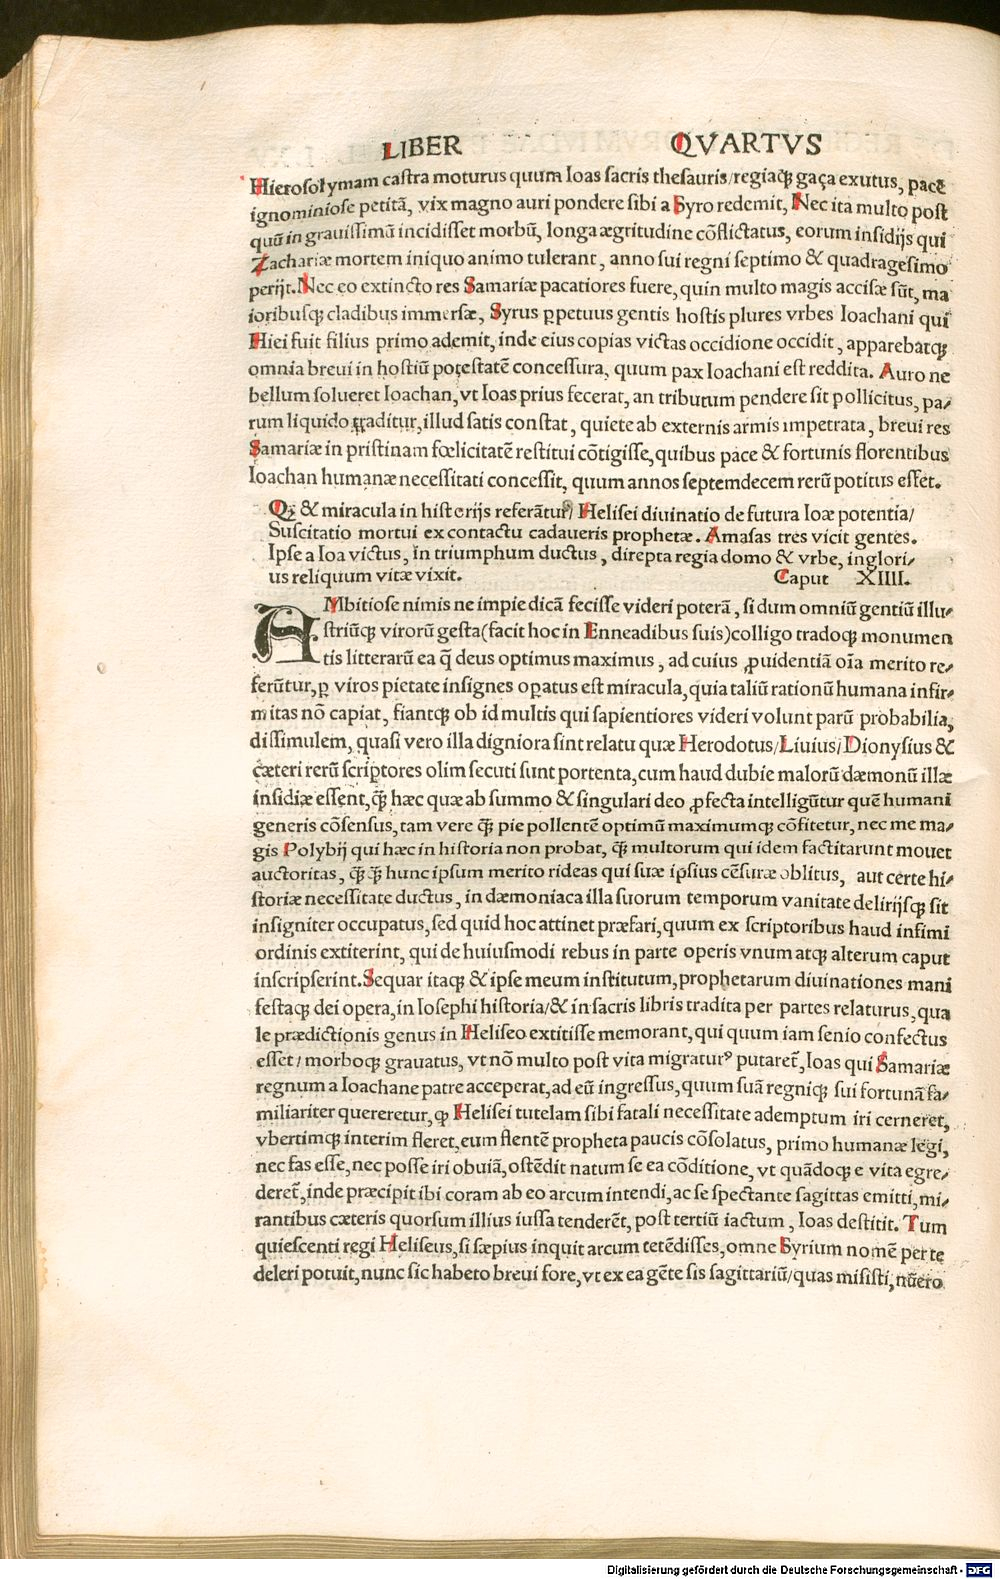 LIBER QVARTVS
Hierosolymam castra moturus quum Ioas sacris thesauris/regiaqȝ gaça exutus, pacē
ignominiose petitā, vix magno auri pondere sibi a Syro redemit, Nec ita multo post
quū in grauissimū incidisset morbū, longa ægritudine cōflictatus, eorum insidijs qui
Zachariæ mortem iniquo animo tulerant, anno sui regni septimo & quadragesimo
perijt. Nec eo extincto res Samariæ pacatiores fuere, quin multo magis accisæ sūt, ma
ioribusqȝ cladibus immersæ, Syrus ꝑpetuus gentis hostis plures vrbes Ioachani qui
Hiei fuit filius primo ademit, inde eius copias victas occidione occidit, apparebatqȝ
omnia breui in hostiū potestatē concessura, quum pax Ioachani est reddita. Auro ne
bellum solueret Ioachan, vt Ioas prius fecerat, an tributum pendere sit pollicitus, pa/
rum liquido traditur, illud satis constat, quiete ab externis armis impetrata, breui res
Samariæ in pristinam fœlicitatē restitui cōtigisse, quibus pace & fortunis florentibus
Ioachan humanæ necessitati concessit, quum annos septemdecem rerū potitus esset.
Qȝ & miracula in historijs referātur/ Helisei diuinatio de futura Ioæ potentia/
Suscitatio mortui ex contactu cadaueris prophetæ. Amasas tres vicit gentes.
Ipse a Ioa victus, in triumphum ductus, direpta regia domo & vrbe, inglori/
us reliquum vitæ vixit. Caput XIIII.
AMbitiose nimis ne impie dicā fecisse videri poterā, si dum omniū gentiū illu/
striūqȝ virorū gesta(facit hoc in Enneadibus suis)colligo tradoqȝ monumen
tis litterarū ea q̄ deus optimus maximus, ad cuius ꝓuidentiā oīa merito re/
ferūtur, ꝑ viros pietate insignes oꝑatus est miracula, quia taliū rationū humana infir/
mitas nō capiat, fiantqȝ ob id multis qui sapientiores videri volunt parū probabilia,
dissimulem, quasi vero illa digniora sint relatu quæ Herodotus/Liuius/Dionysius &
cæteri rerū scriptores olim secuti sunt portenta, cum haud dubie malorū dæmonū illæ
insidiæ essent, q̄ȝ hæc quæ ab summo & singulari deo ꝓfecta intelligūtur quē humani
generis cōsensus, tam vere q̄ȝ pie pollentē optimū maximumqȝ cōfitetur, nec me ma/
gis Polybij qui hæc in historia non probat, q̄ȝ multorum qui idem factitarunt mouet
auctoritas, q̄ȝ q̄ȝ hunc ipsum merito rideas qui suæ ipsius cēsuræ oblitus, aut certe hi/
storiæ necessitate ductus, in dæmoniaca illa suorum temporum vanitate delirijsqȝ sit
insigniter occupatus, sed quid hoc attinet præfari, quum ex scriptoribus haud infimi
ordinis extiterint, qui de huiusmodi rebus in parte operis vnum atqȝ alterum caput
inscripserint. Sequar itaqȝ & ipse meum institutum, prophetarum diuinationes mani
festaqȝ dei opera, in Iosephi historia/& in sacris libris tradita per partes relaturus, qua
le prædictionis genus in Heliseo extitisse memorant, qui quum iam senio confectus
esset/ morboqȝ grauatus, vt nō multo post vita migraturꝰ putaret̄, Ioas qui Samariæ
regnum a Ioachane patre acceperat, ad eū ingressus, quum suā regniqȝ sui fortunā fa/
miliariter quereretur, ꝙ Helisei tutelam sibi fatali necessitate ademptum iri cerneret,
vbertimqȝ interim fleret, eum flentē propheta paucis cōsolatus, primo humanæ legi,
nec fas esse, nec posse iri obuiā, ostēdit natum se ea cōditione, vt quādoqȝ e vita egre/
deret̄, inde præcipit ibi coram ab eo arcum intendi, ac se spectante sagittas emitti, mi/
rantibus cæteris quorsum illius iussa tenderēt, post tertiū iactum, Ioas destitit. Tum
quiescenti regi Heliseus, si sæpius inquit arcum tetēdisses, omne Syrium nomē per te
deleri potuit, nunc sic habeto breui fore, vt ex ea gēte sis sagittariū/quas misisti, nūero
Digitalisierung gefördert durch die Deutsche Forschungsgemeinschaft - DFG